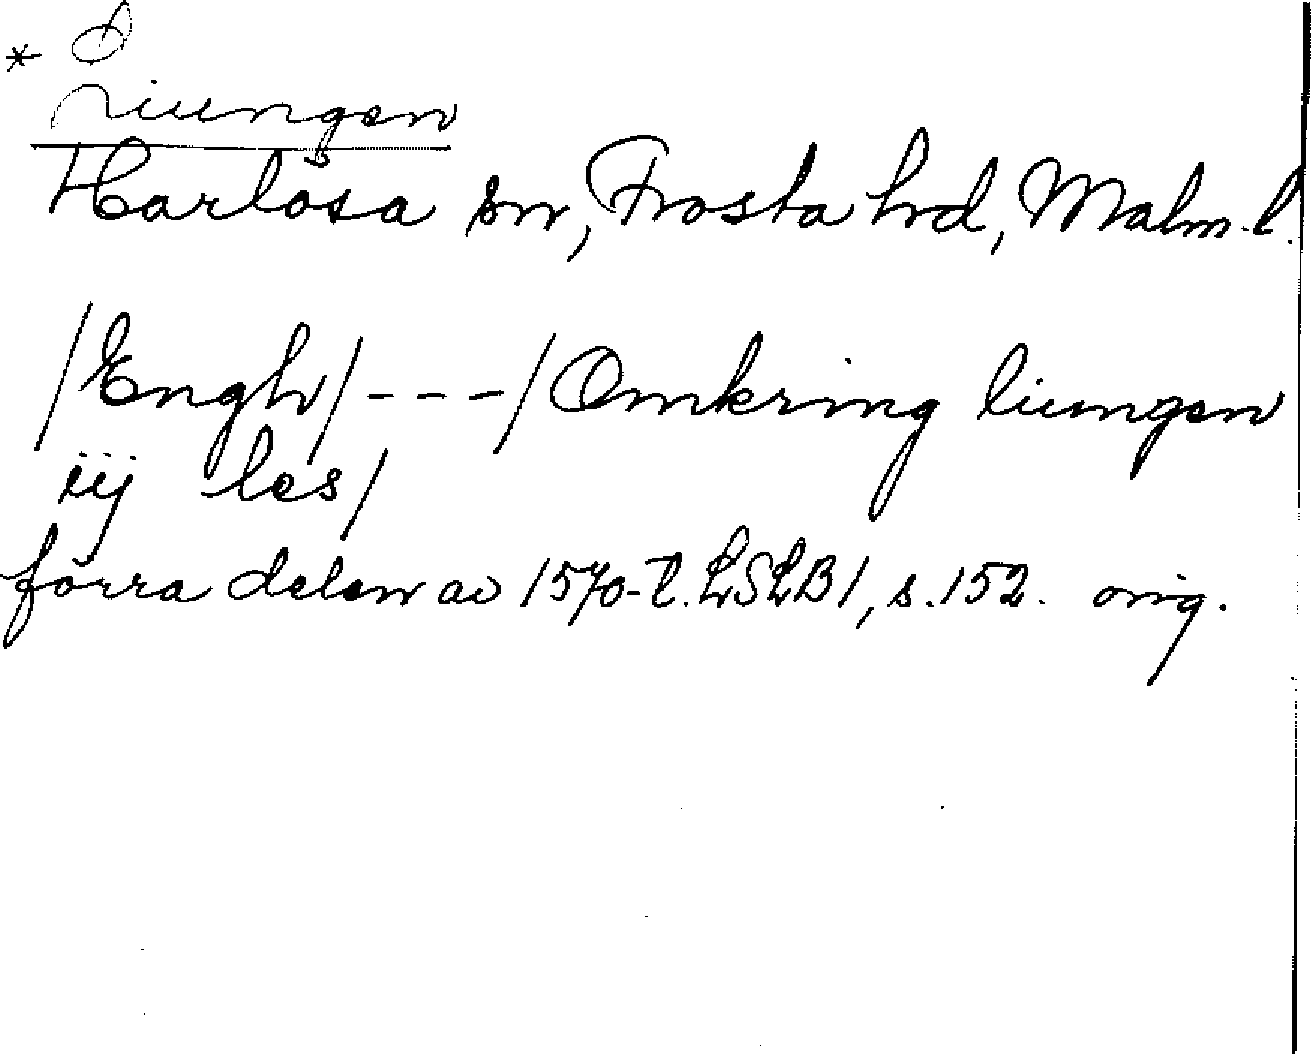 *
Liungen
Harlösa sn, Frosta hrd, Malm. l.
/Engh/ - - - /Omkring liungen
iij les/
förra delen av 1570-t. LSLB1, s. 152. orig.